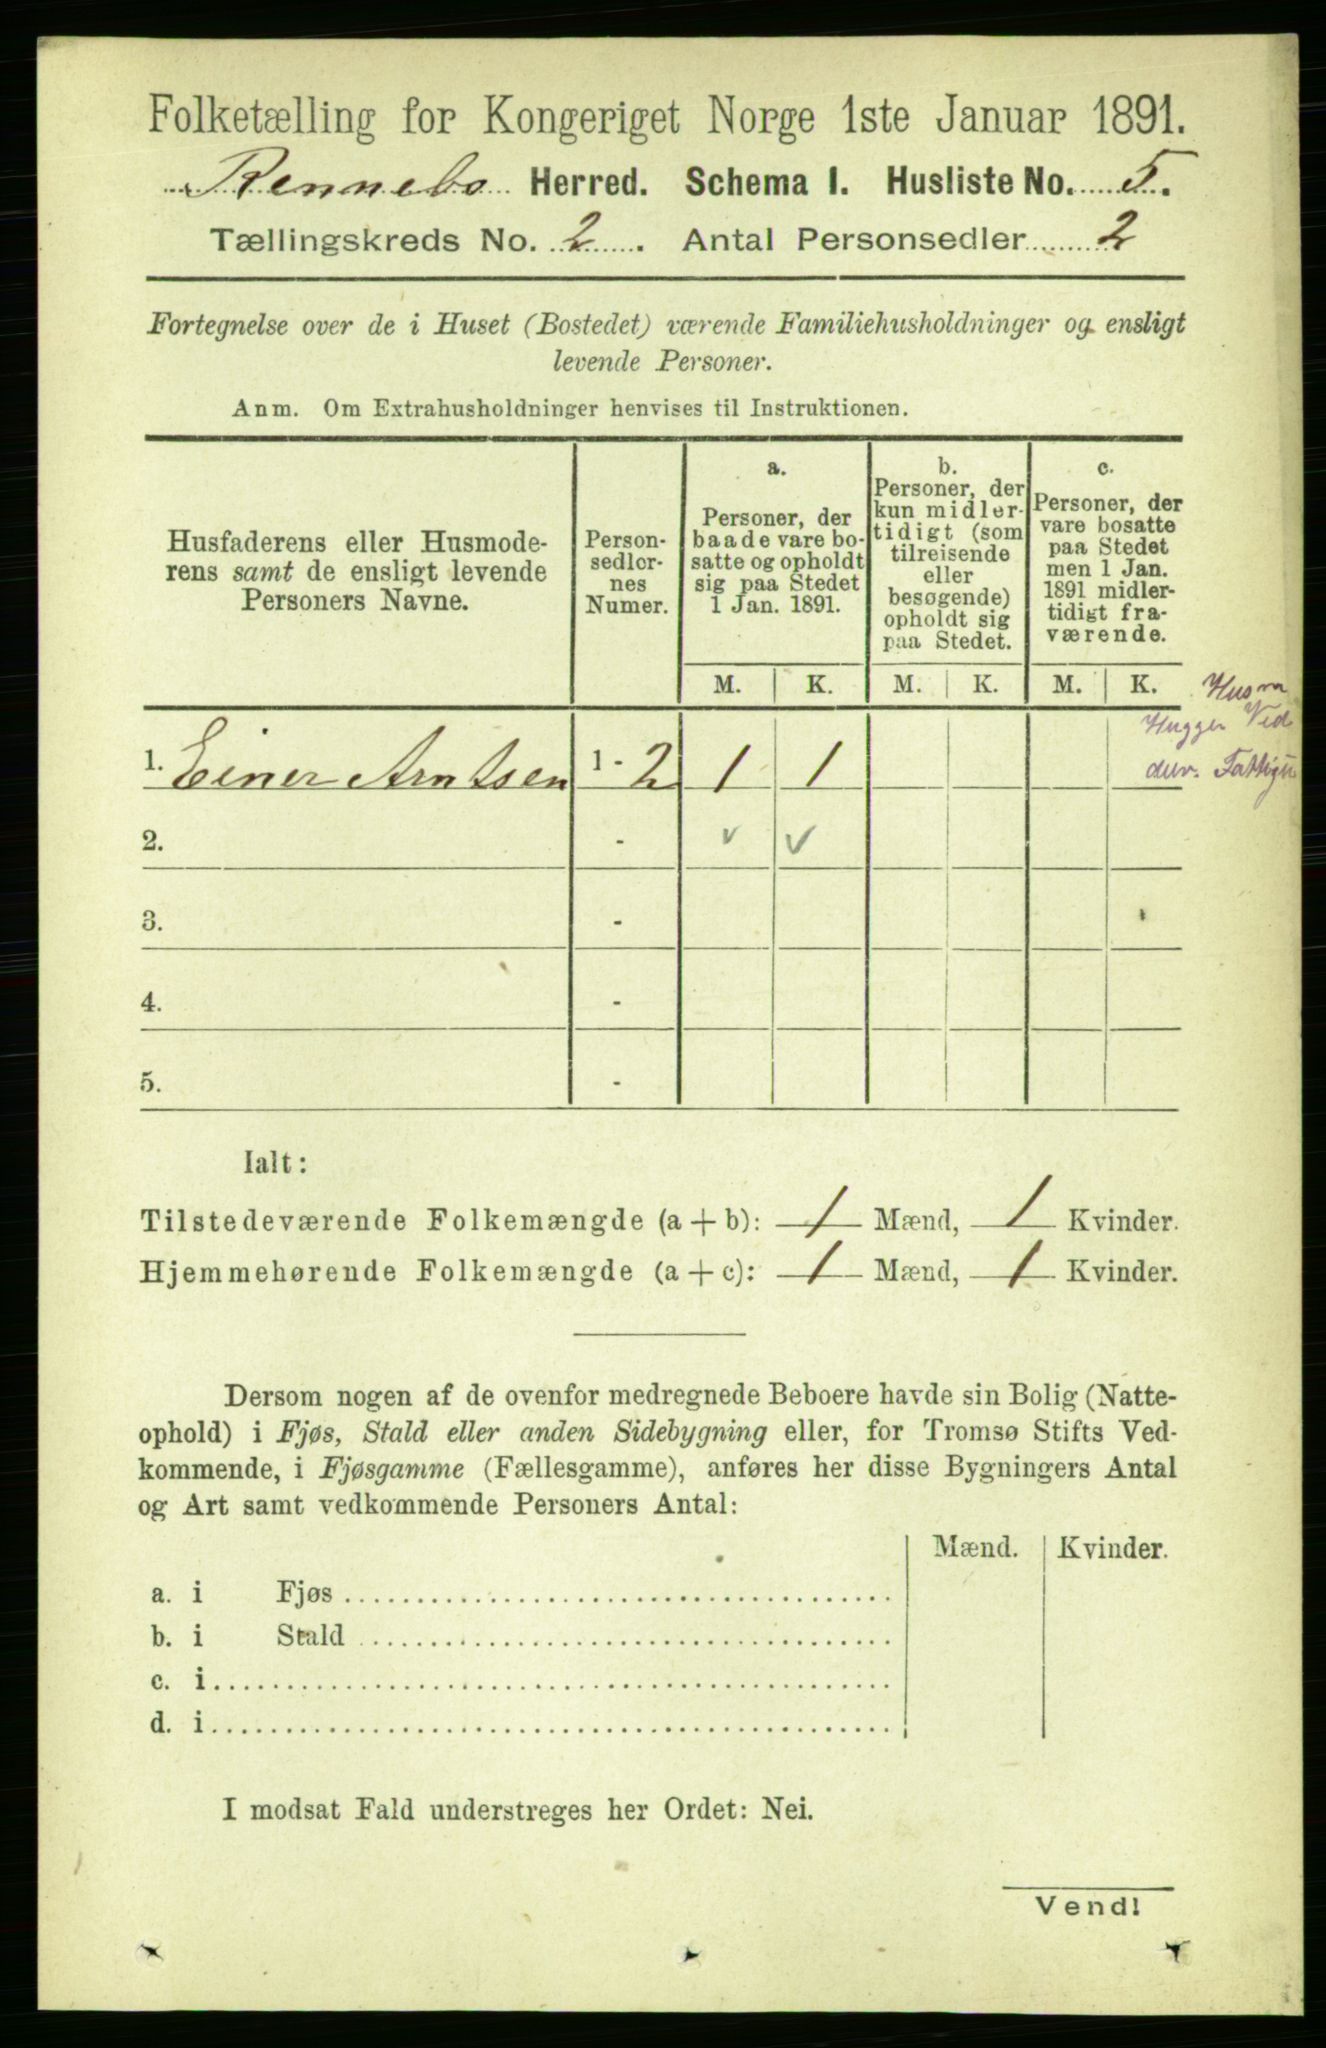 Folketælling for Kongeriget Norge 1ste Januar 1891.
Rennebo Herred. Schema I. Husliste No. 5.
Tællingskreds No. 2. Antal Personsedler 2
Fortegnelse over de i Huset (Bostedet) værende Familiehusholdninger og ensligt
levende Personer.
Anm. Om Extrahusholdninger henvises til Instruktionen.
Husfaderens eller Husmode-
rens samt de ensligt levende
Personers Navne.
Person-
sedler-
nes
Numer.
a.
Personer, der
baade vare bo-
satte og opholdt
sig paa Stedet
1 Jan. 1891.
b.
Personer, der
kun midler-
tidigt (som
tilreisende
eller
besøgende)
opholdt sig
paa Stedet.
c.
Personer, der
vare bosatte
paa Stedet
men 1 Jan.
1891 midler-
tidigt fra-
værende.
M. K. M. K. M. K.
Hugger Ved
1. Einer Arntsen 1 - 2 1 1
2. - ✓ ✓
3. -
4. -
5. -
Ialt:
Tilstedeværende Folkemængde (a + b): 1 Mænd, 1 Kvinder.
Hjemmehørende Folkemængde (a + c): 1 Mænd, 1 Kvinder.
Dersom nogen af de ovenfor medregnede Beboere havde sin Bolig (Natte-
ophold) i Fjøs, Stald eller anden Sidebygning eller, for Tromsø Stifts Ved-
kommende, i Fjøsgamme (Fællesgamme), anføres her disse Bygningers Antal
og Art samt vedkommende Personers Antal:
Mænd. Kvinder.
a. i Fjøs
b. i Stald
c. i
d. i
I modsat Fald understreges her Ordet: Nei.
Vend!